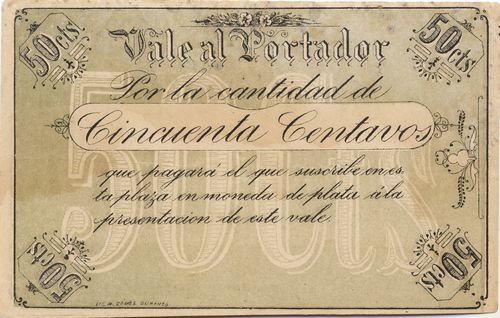 50 cts. 50 cts.
Vale al Portador
Por la cantidad de
Cincuenta Centavos
que pagará el que suscribe en es
ta plaza en moneda de plata á la
presentacion de este vale.
50 cts
50 cts. 50 cts.